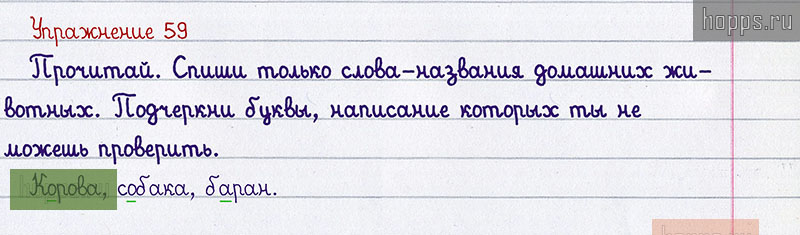 hopps.ru
Упражнение 59
Прочитай. Спиши только слова-названия домашних жи-
вотных. Подчеркни буквы, написание которых ты не
можешь проверить.
Корова, собака, баран.